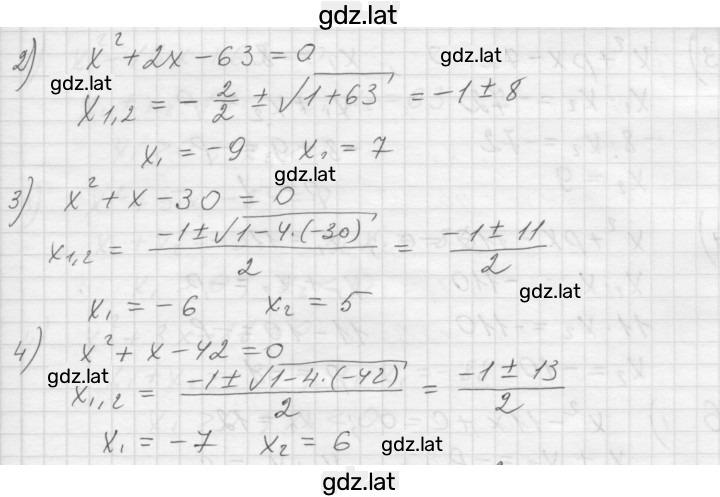 gdz.lat
2) x² + 2x - 63 = 0
gdz.lat gdz.lat
x₁,₂ = - 2/2 ± √(1+63) = -1 ± 8
x₁ = -9 x₂ = 7
gdz.lat
3) x² + x - 30 = 0
x₁,₂ = (-1 ± √(1-4·(-30)))/2 = (-1 ± 11)/2
gdz.lat
x₁ = -6 x₂ = 5
4) x² + x - 42 = 0
gdz.lat
x₁,₂ = (-1 ± √(1-4·(-42)))/2 = (-1 ± 13)/2
x₁ = -7 x₂ = 6 gdz.lat
gdz.lat